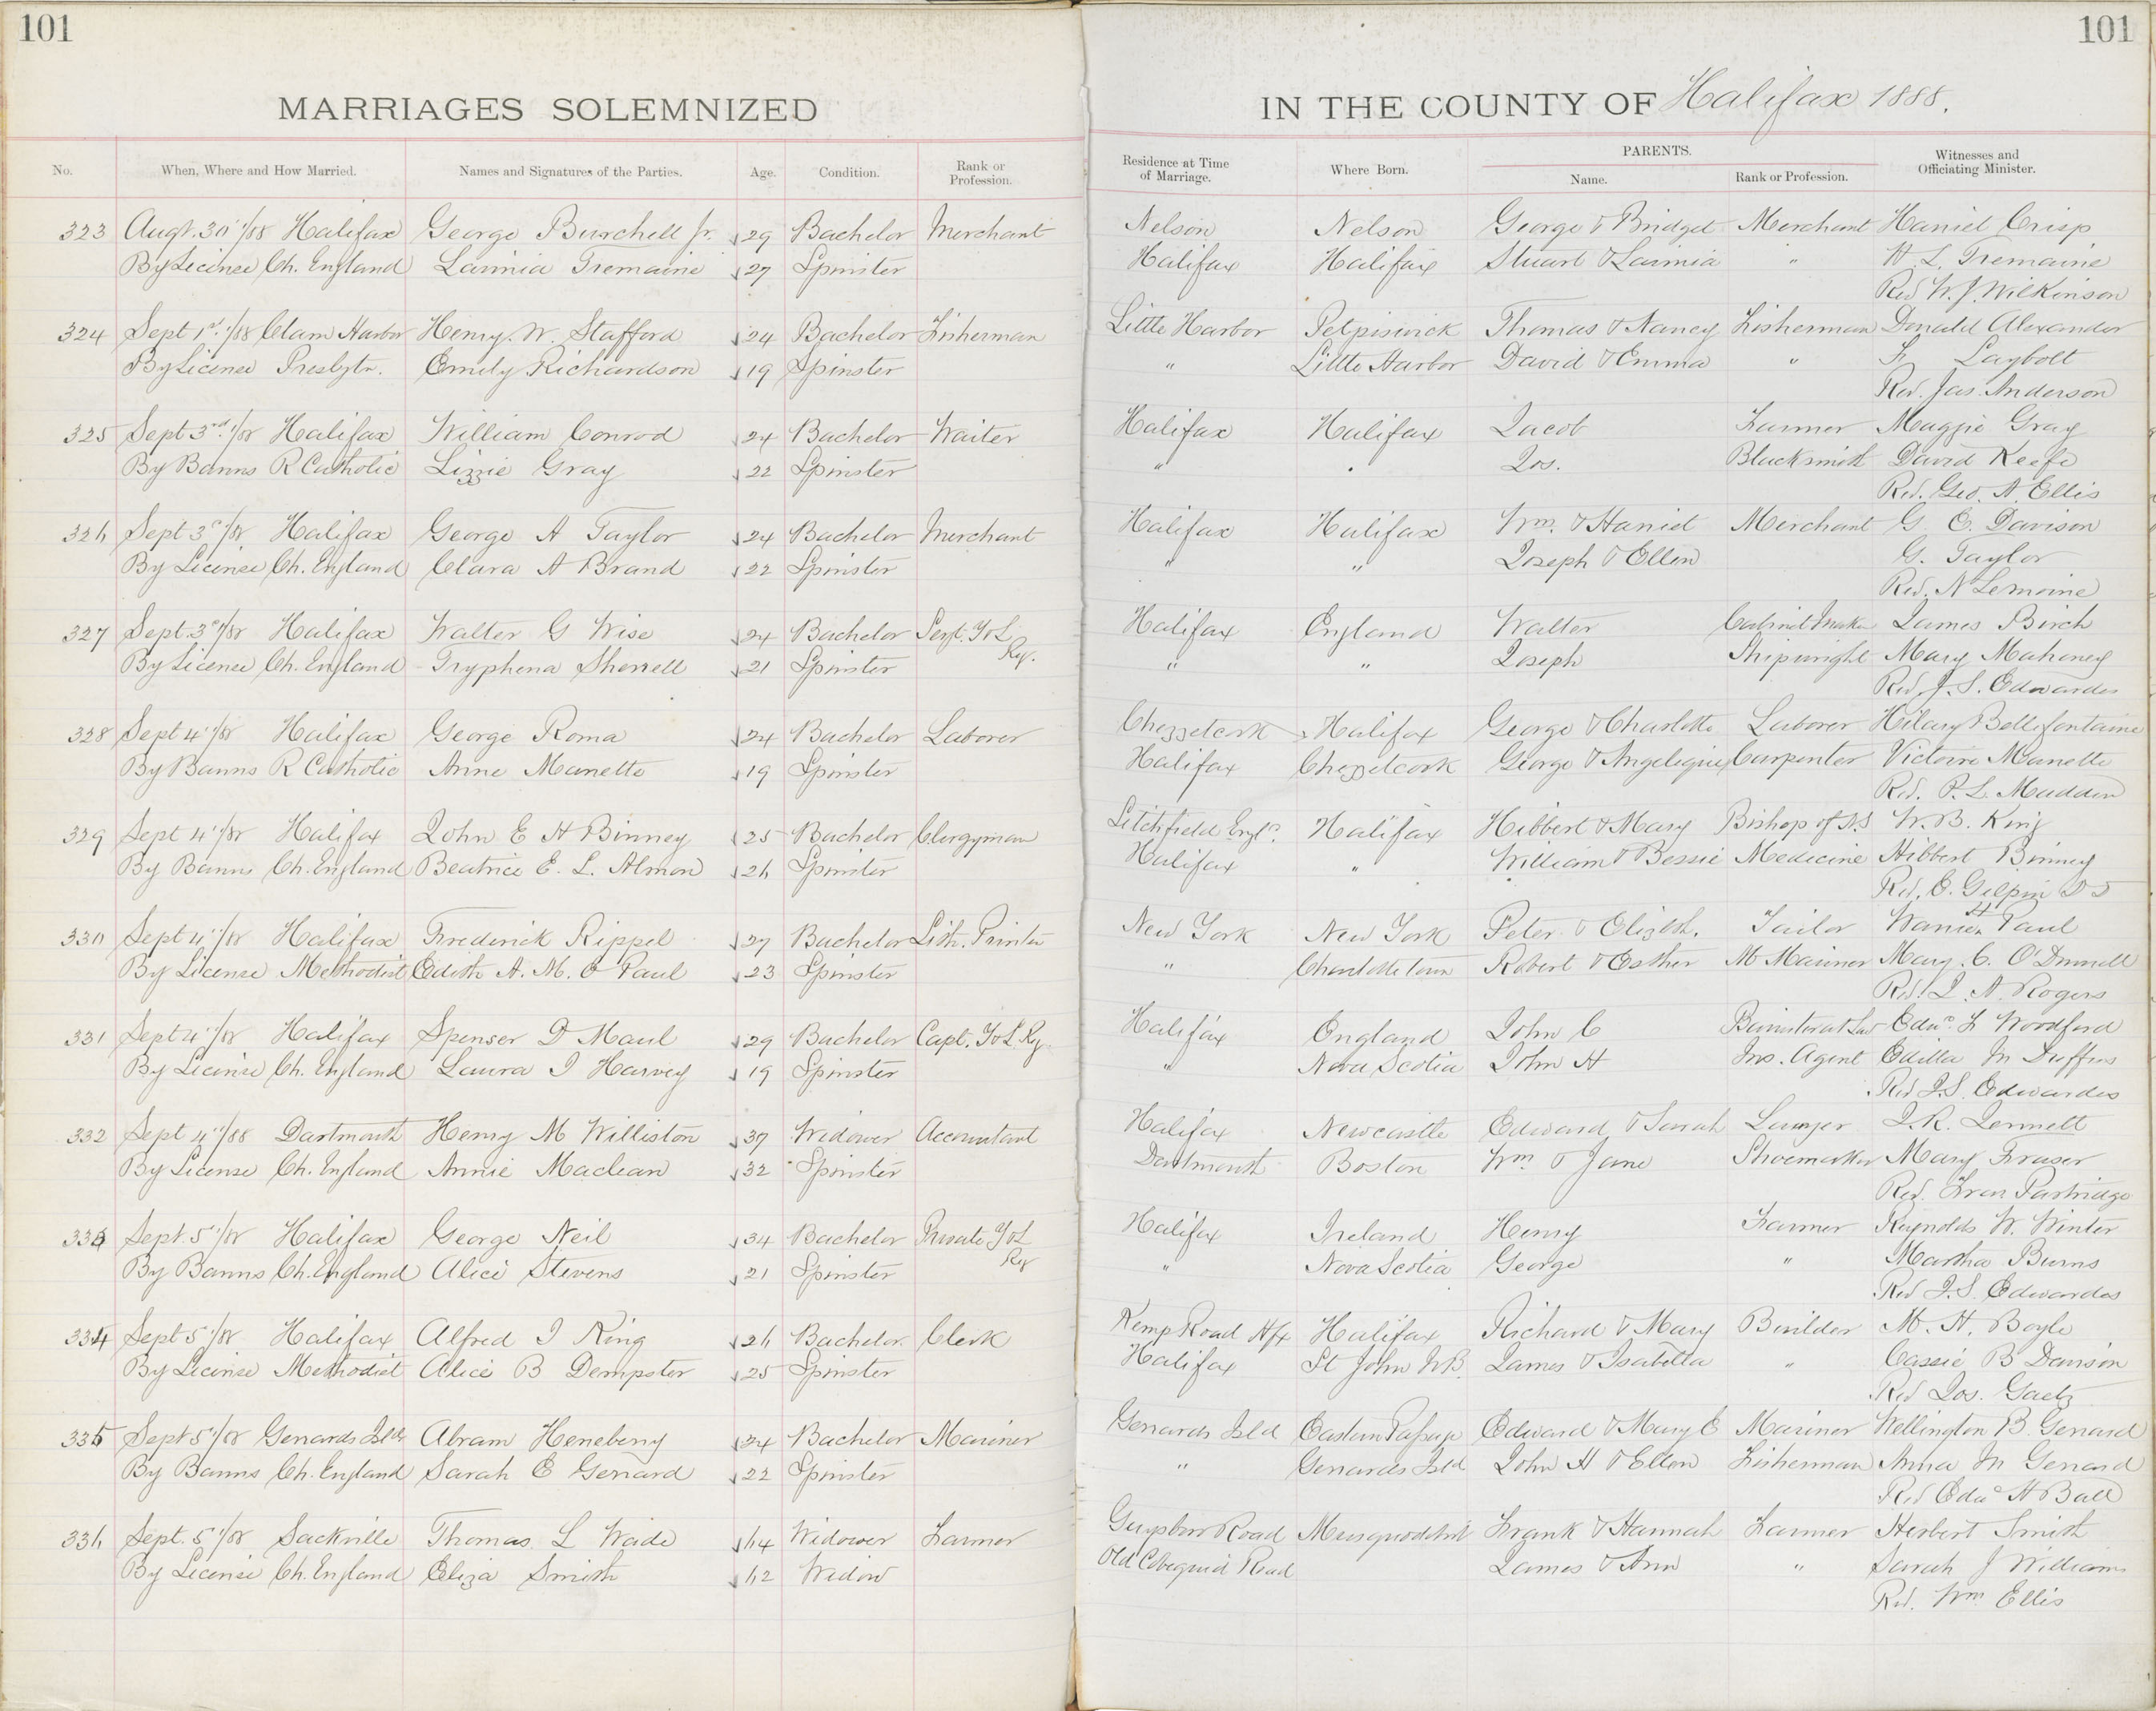 101
101
MARRIAGES SOLEMNIZED
IN THE COUNTY OF Halifax 1888.
No. When, Where and How Married. Names and Signatures of the Parties. Age. Condition. Rank or Profession. Residence at Time of Marriage. Where Born. PARENTS. Name. Rank or Profession. Witnesses and Officiating Minister.
323 Augt. 30 1/88 Halifax George Burchell Jr. 29 Bachelor Merchant Nelson Nelson George & Bridget Merchant Haniel Crisp
By License Ch. England Lavinia Tremaine 27 Spinster Halifax Halifax Stuart & Lavinia " H. L. Tremaine
Red W. J. Wilkinson
324 Sept 1st 1/88 Clam Harbor Henry. W. Stafford 24 Bachelor Fisherman Little Harbor Petpiswick Thomas & Nancy Fisherman Donald Alexander
By License Presbytn. Emily Richardson 19 Spinster " Little Harbor David & Emma " F Laybolt
Red. Jas. Anderson
325 Sept 3rd 1/88 Halifax William Conrod 24 Bachelor Waiter Halifax Halifax Jacob Farmer Maggie Gray
By Banns R Catholic Lizzie Gray 22 Spinster " Jos. Blacksmith David Keefe
Red. Geo. A. Ellis
326 Sept 3rd 1/88 Halifax George A Taylor 24 Bachelor Merchant Halifax Halifax Wm. & Harriet Merchant G. E. Davison
By License Ch. England Clara A Brand 22 Spinster " " Joseph & Ellen G. Taylor
Red. N Lemoine
327 Sept. 3rd 1/88 Halifax Walter G Wise 24 Bachelor Sergt. Y&L Reg. Halifax England Walter Cabinet Maker James Birch
By License Ch. England Tryphena Sherrell 21 Spinster " " Joseph Shipwright Mary Mahoney
Red. J. S. Edwardes
328 Sept 4 1/88 Halifax George Roma 24 Bachelor Laborer Chezzetcook Halifax George & Charlotte Laborer Hilary Bellefontaine
By Banns R Catholic Anne Manette 19 Spinster Halifax Chezzetcook George & Angelique Carpenter Victoire Manette
Red. P. L. Madden
329 Sept 4 1/88 Halifax John E H Binney 25 Bachelor Clergyman Litchfield Engld. Halifax Hibbert & Mary Bishop of N.S W. B. King
By Banns Ch. England Beatrice E. L. Almon 26 Spinster Halifax " William & Bessie Medicine Hibbert Binney
Red. E. Gilpin D D
330 Sept 4 1/88 Halifax Frederick Rippel 27 Bachelor Lith. Printer New York New York Peter & Elizbth. Tailor H Paul
By License Methodist Edith A. M. O Paul 23 Spinster " Charlottetown Robert & Esther M Mariner Mary. C. O'Donnell
Red. J. A. Rogers
331 Sept 4 1/88 Halifax Spenser D Maul 29 Bachelor Capt. Y&L Rg Halifax England John C Barrister at Law Edwd. F Woodford
By License Ch. England Laura I Harvey 19 Spinster " Nova Scotia John H Ins. Agent Edilla M Duffus
Red J. S. Edwardes
332 Sept 4 1/88 Dartmouth Henry M Williston 37 Widower Accountant Halifax Newcastle Edward & Sarah Lawyer J. R. Jennett
By License Ch. England Annie Maclean 32 Spinster Dartmouth Boston Wm & Jane Shoemaker Mary Fraser
Red. Fran Partridge
333 Sept. 5 1/88 Halifax George Neil 34 Bachelor Private Y&L Reg Halifax Ireland Henry Farmer Reynolds W. Winter
By Banns Ch. England Alice Stevens 21 Spinster " Nova Scotia George " Martha Burns
Red J. S. Edwardes
334 Sept 5 1/88 Halifax Alfred I King 26 Bachelor. Clerk Kemp Road Hfx Halifax Richard & Mary Builder M. H. Boyle
By License Methodist Alice B Dempster 25 Spinster Halifax St John N.B. James & Isabella " Cassie B Davison
Red Jos. Gaetz
335 Sept 5 1/88 Genards Isld Abram Heneberry 24 Bachelor Mariner Genards Isld Eastern Passage Edward & Mary E Mariner Wellington B. Genard
By Banns Ch. England Sarah E Genard 22 Spinster " Genards Isld John H & Ellen Fisherman Anna M Genard
Red Edwd H Ball
336 Sept. 5 1/88 Sackville Thomas L Wade 64 Widower Farmer Guysboro Road Musquodoboit Frank & Hannah Farmer Herbert Smith
By License Ch. England Eliza Smith 62 Widow Old Cobequid Road James & Ann " Sarah J Williams
Red. Wm Ellis